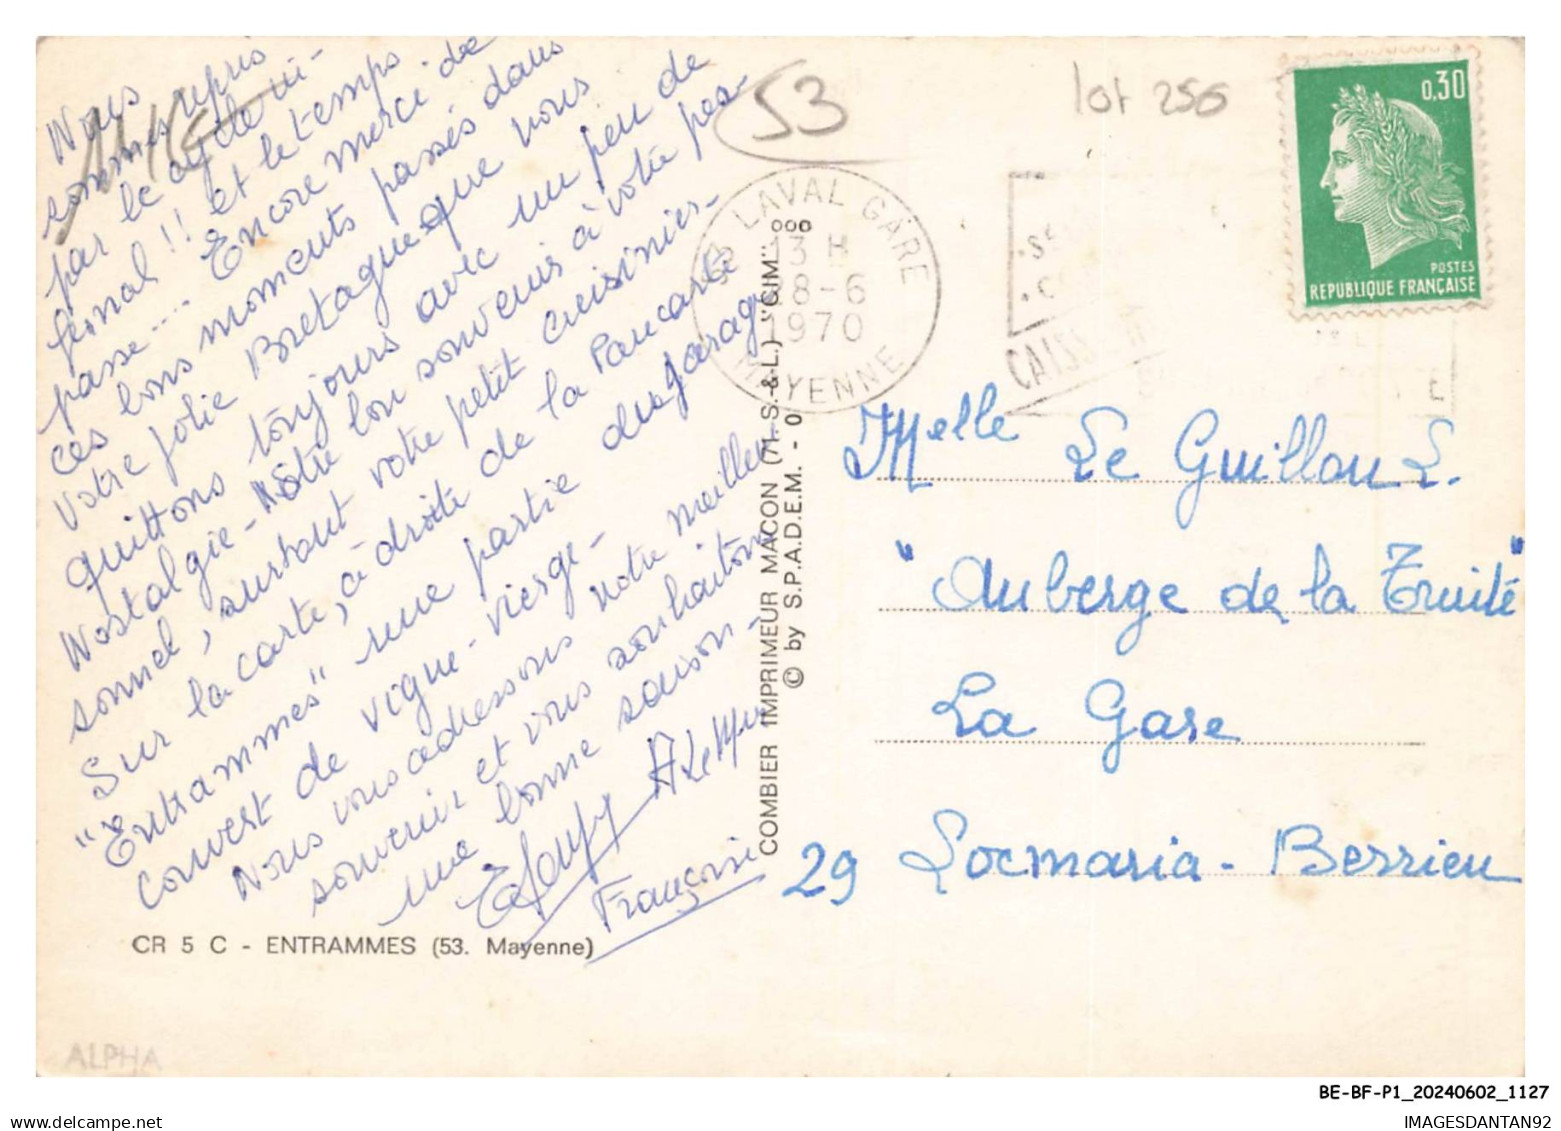 Nous
sommes repris
par le cycle in-
fernal !! et le temps
passe.... Encore merci de
ces bons moments passés dans
Votre jolie Bretagne que nous
quittons toujours avec un peu de
Nostalgie - Nôtre bon souvenir à votre per-
sonnel, surtout votre petit cuisinier -
Sur la carte, à droite de la Pancarte
"Entrammes" une partie du garage
couvert de vigne-vierge -
Nous vous adressons notre meilleur
souvenir et vous souhaitons
une bonne saison -
Françoise
CR 5 C - ENTRAMMES (53. Mayenne)
ALPHA
COMBIER IMPRIMEUR MACON (M.-S.-&-L.) "CIM"
© by S.P.A.D.E.M. - 0
53
lot 256
53 LAVAL GARE
13 H
8-6
1970
MAYENNE
CAISS
0,30
POSTES
REPUBLIQUE FRANÇAISE
Melle Le Guillou L.
"Auberge de la Truite"
La Gare
29 Locmaria-Berrien
BE-BF-P1_20240602_1127
IMAGESDANTAN92